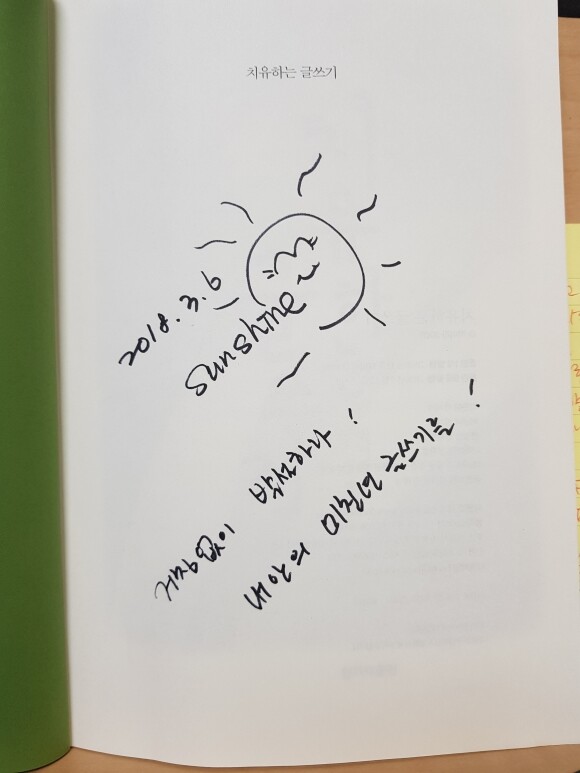 치유하는 글쓰기
2018.3.6
sunshine
거침없이 발설하라!
내 안의 미친년 글쓰기를!